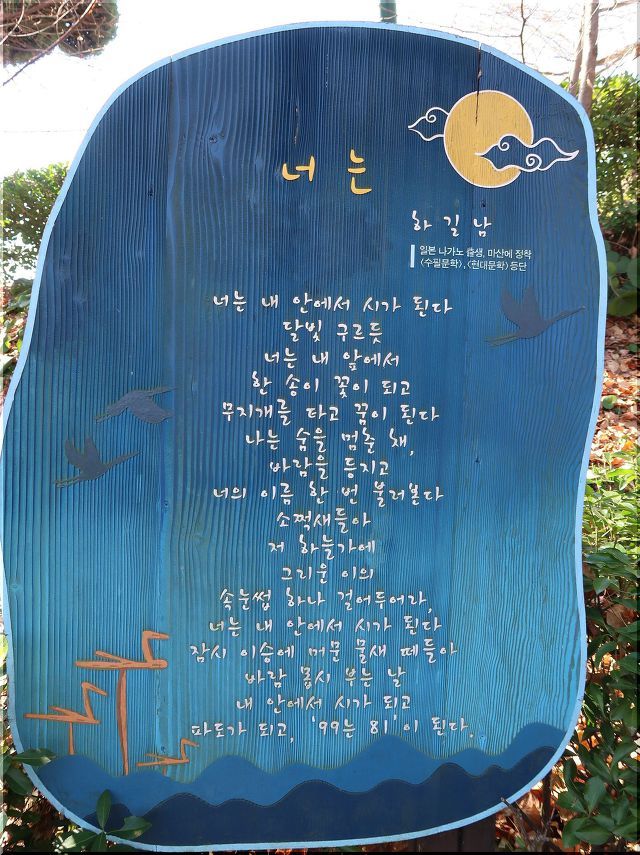 너는
하길남
일본 나가노 출생, 마산에 정착
<수필문학>, <현대문학> 등단
너는 내 안에서 시가 된다
달빛 구르듯
너는 내 앞에서
한 송이 꽃이 되고
무지개를 타고 꿈이 된다
나는 숨을 멈춘 채,
바람을 등지고
너의 이름 한 번 불러본다
소쩍새들아
저 하늘가에
그리운 이의
속눈썹 하나 걸어두어라,
너는 내 안에서 시가 된다
잠시 이승에 머문 물새 떼들아
바람 몹시 부는 날
내 안에서 시가 되고
파도가 되고, '99는 81'이 된다.